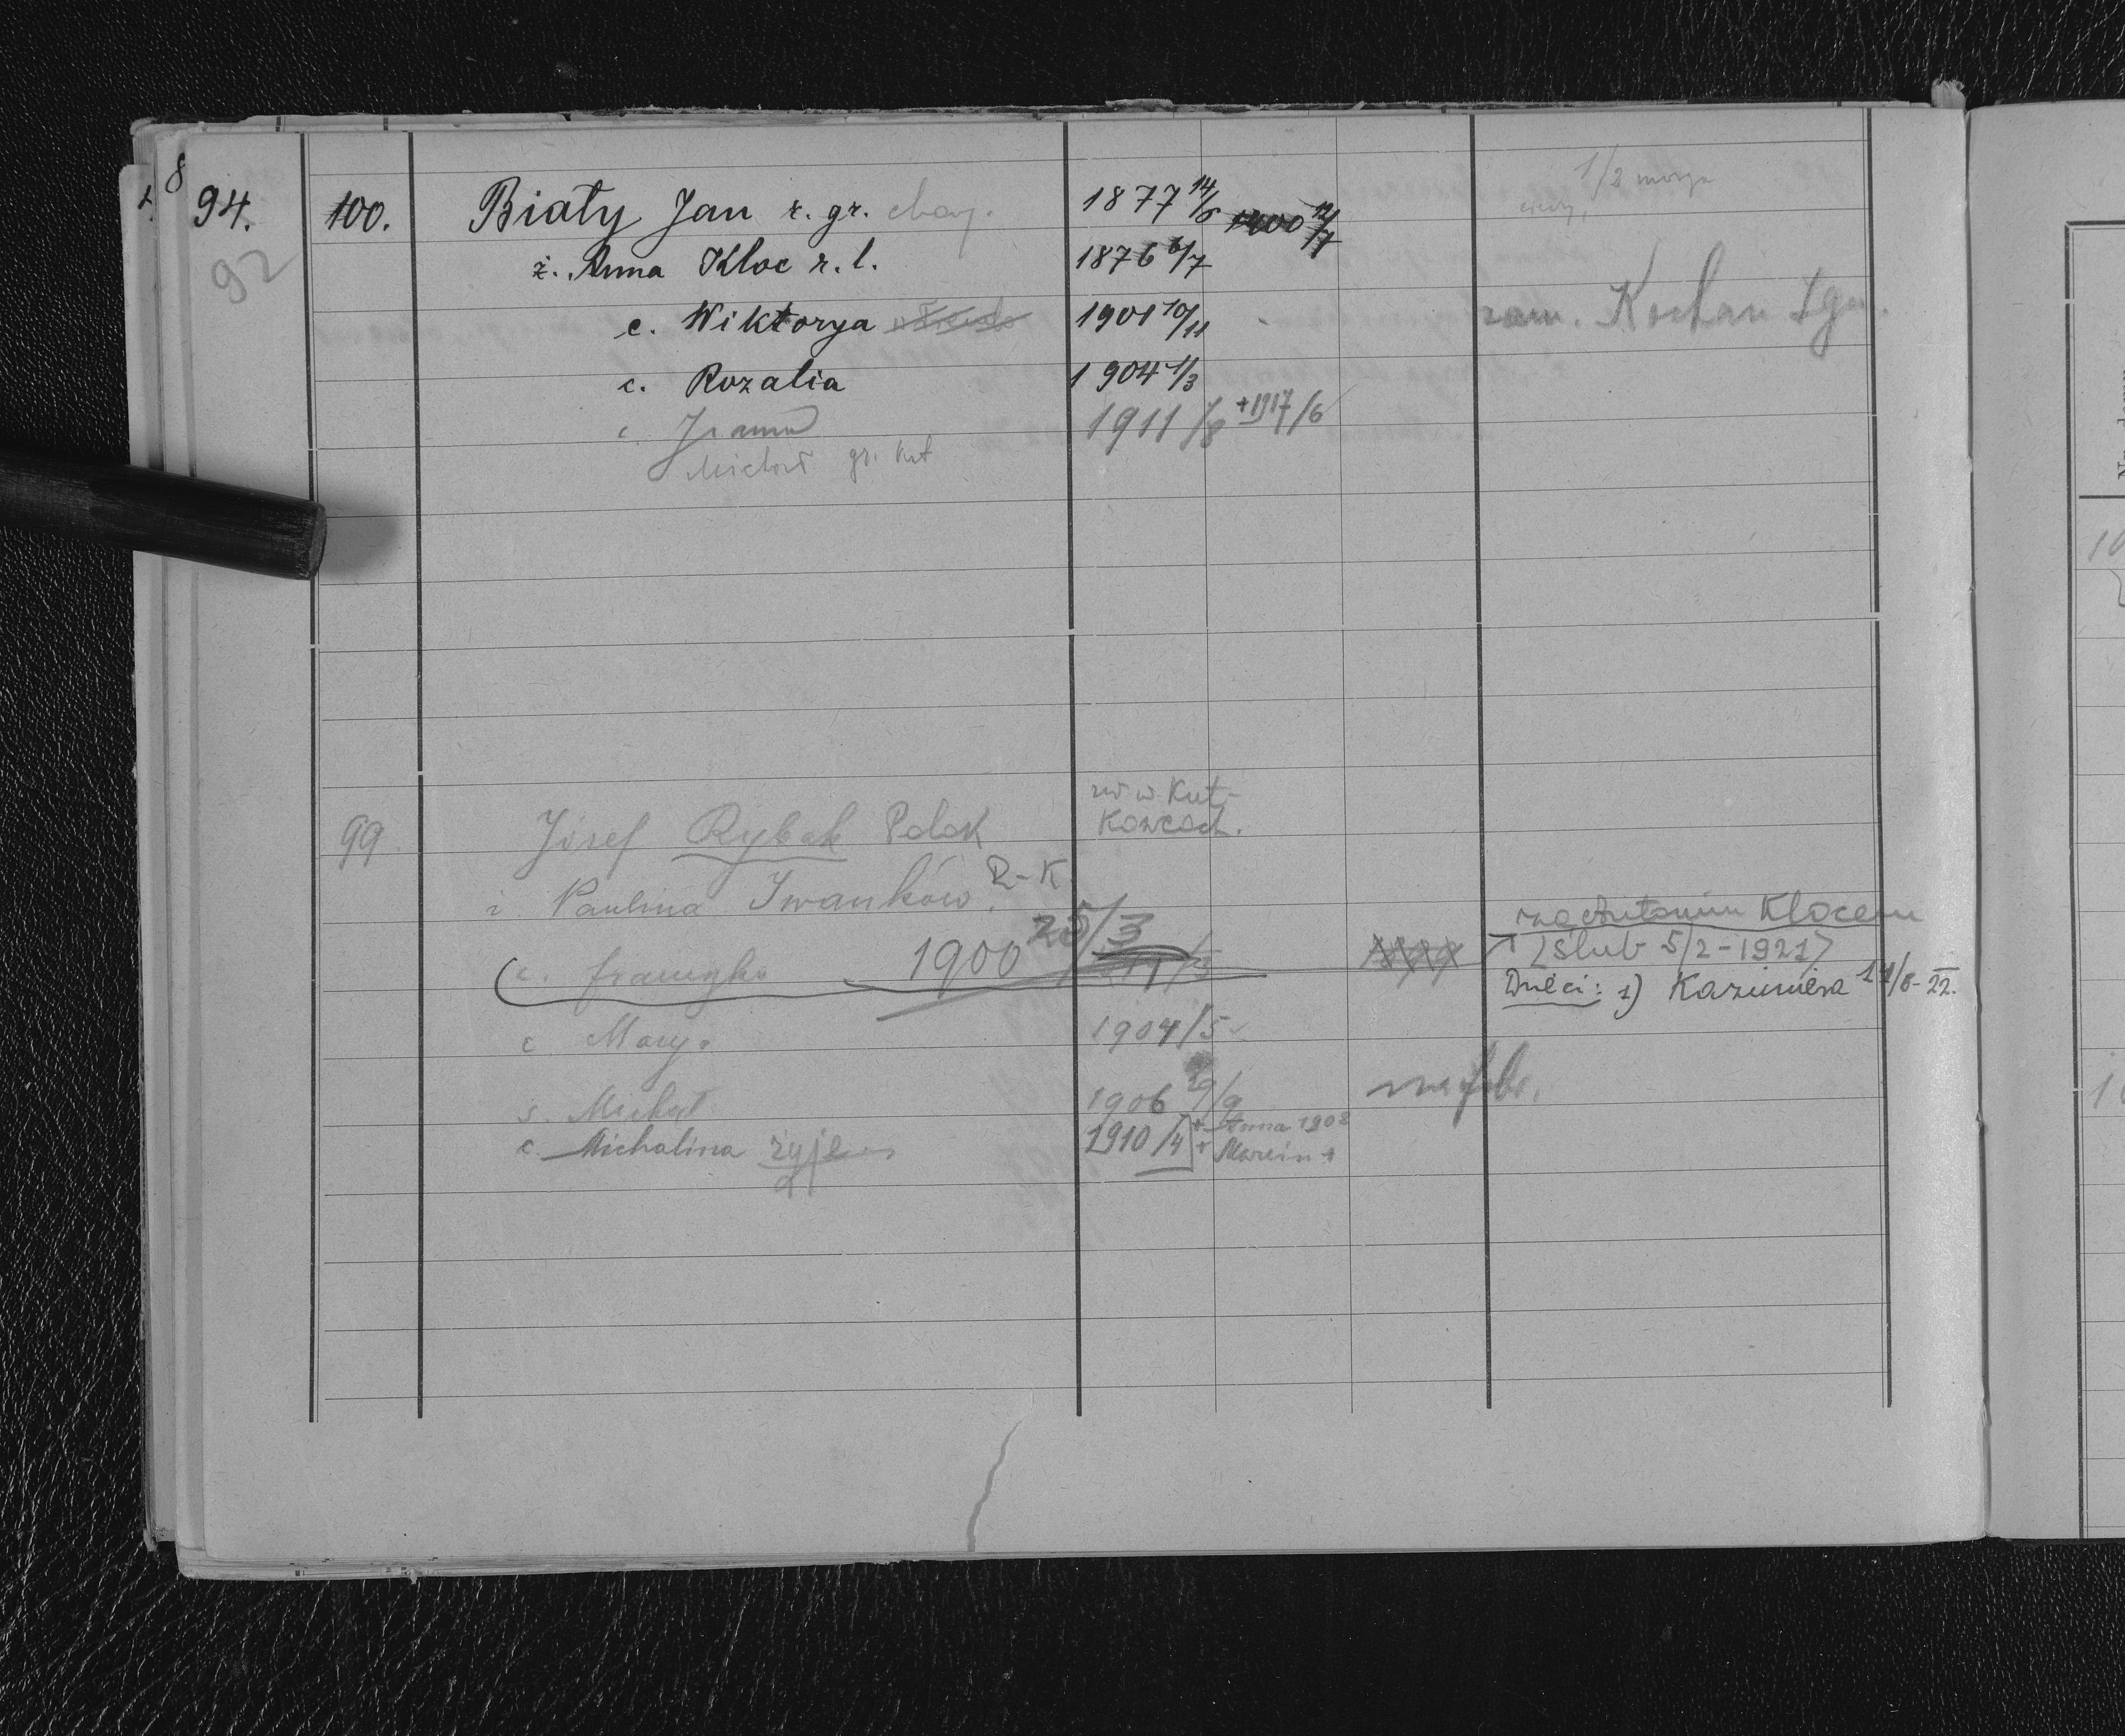 8
94. 100. Biały Jan r. gr. 1877 14/6 1900 12/7 1/2 morga
92 ż. Anna Kloc r. l. 1876 6/7
c. Wiktorya 1901 10/11 zam. Kochan Ign.
c. Rozalia 1904 1/3
c. 1911 /8 +1917/6
Michał gr. kat
99. Józef Rybak Polak w Kut-
kowcach.
ż. Paulina Iwanków. R-K
c. 1900 25/3 za Antonim Klocem
(Ślub 5/2-1921)
Dzieci: 1) Kazimiera 11/8-22.
c. Mary. 1904/5
s. Michał 1906 29/9
c. Michalina żyje 1910/4 + Anna 1908
+ Marcin +